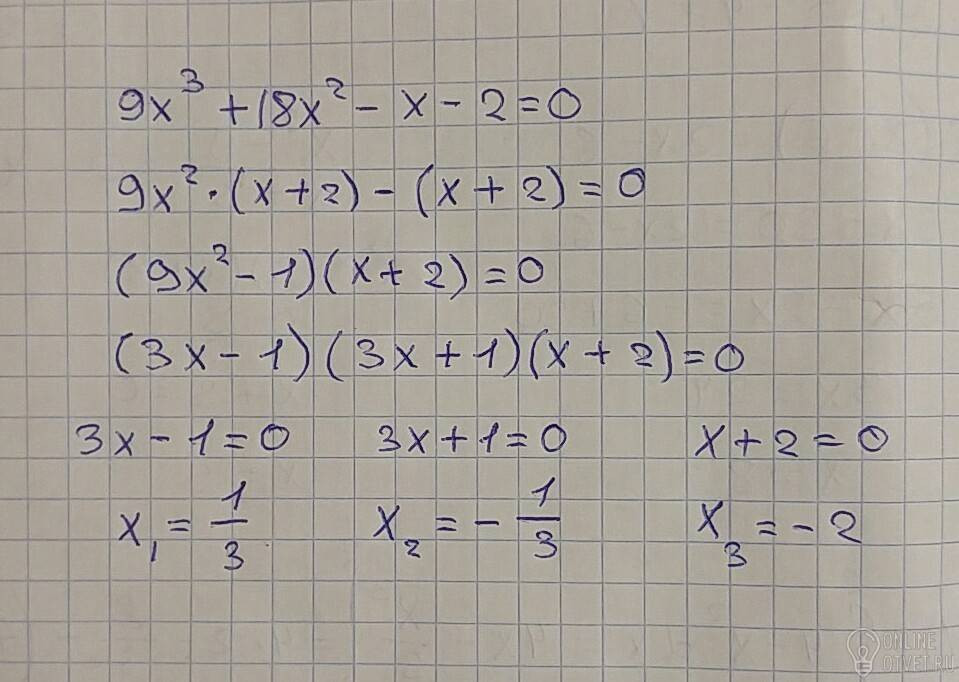 9x³ + 18x² - x - 2 = 0
9x² · (x + 2) - (x + 2) = 0
(9x² - 1)(x + 2) = 0
(3x - 1)(3x + 1)(x + 2) = 0
3x - 1 = 0 3x + 1 = 0 x + 2 = 0
x₁ = 1/3 x₂ = - 1/3 x₃ = - 2
ONLINE
OTVET.RU